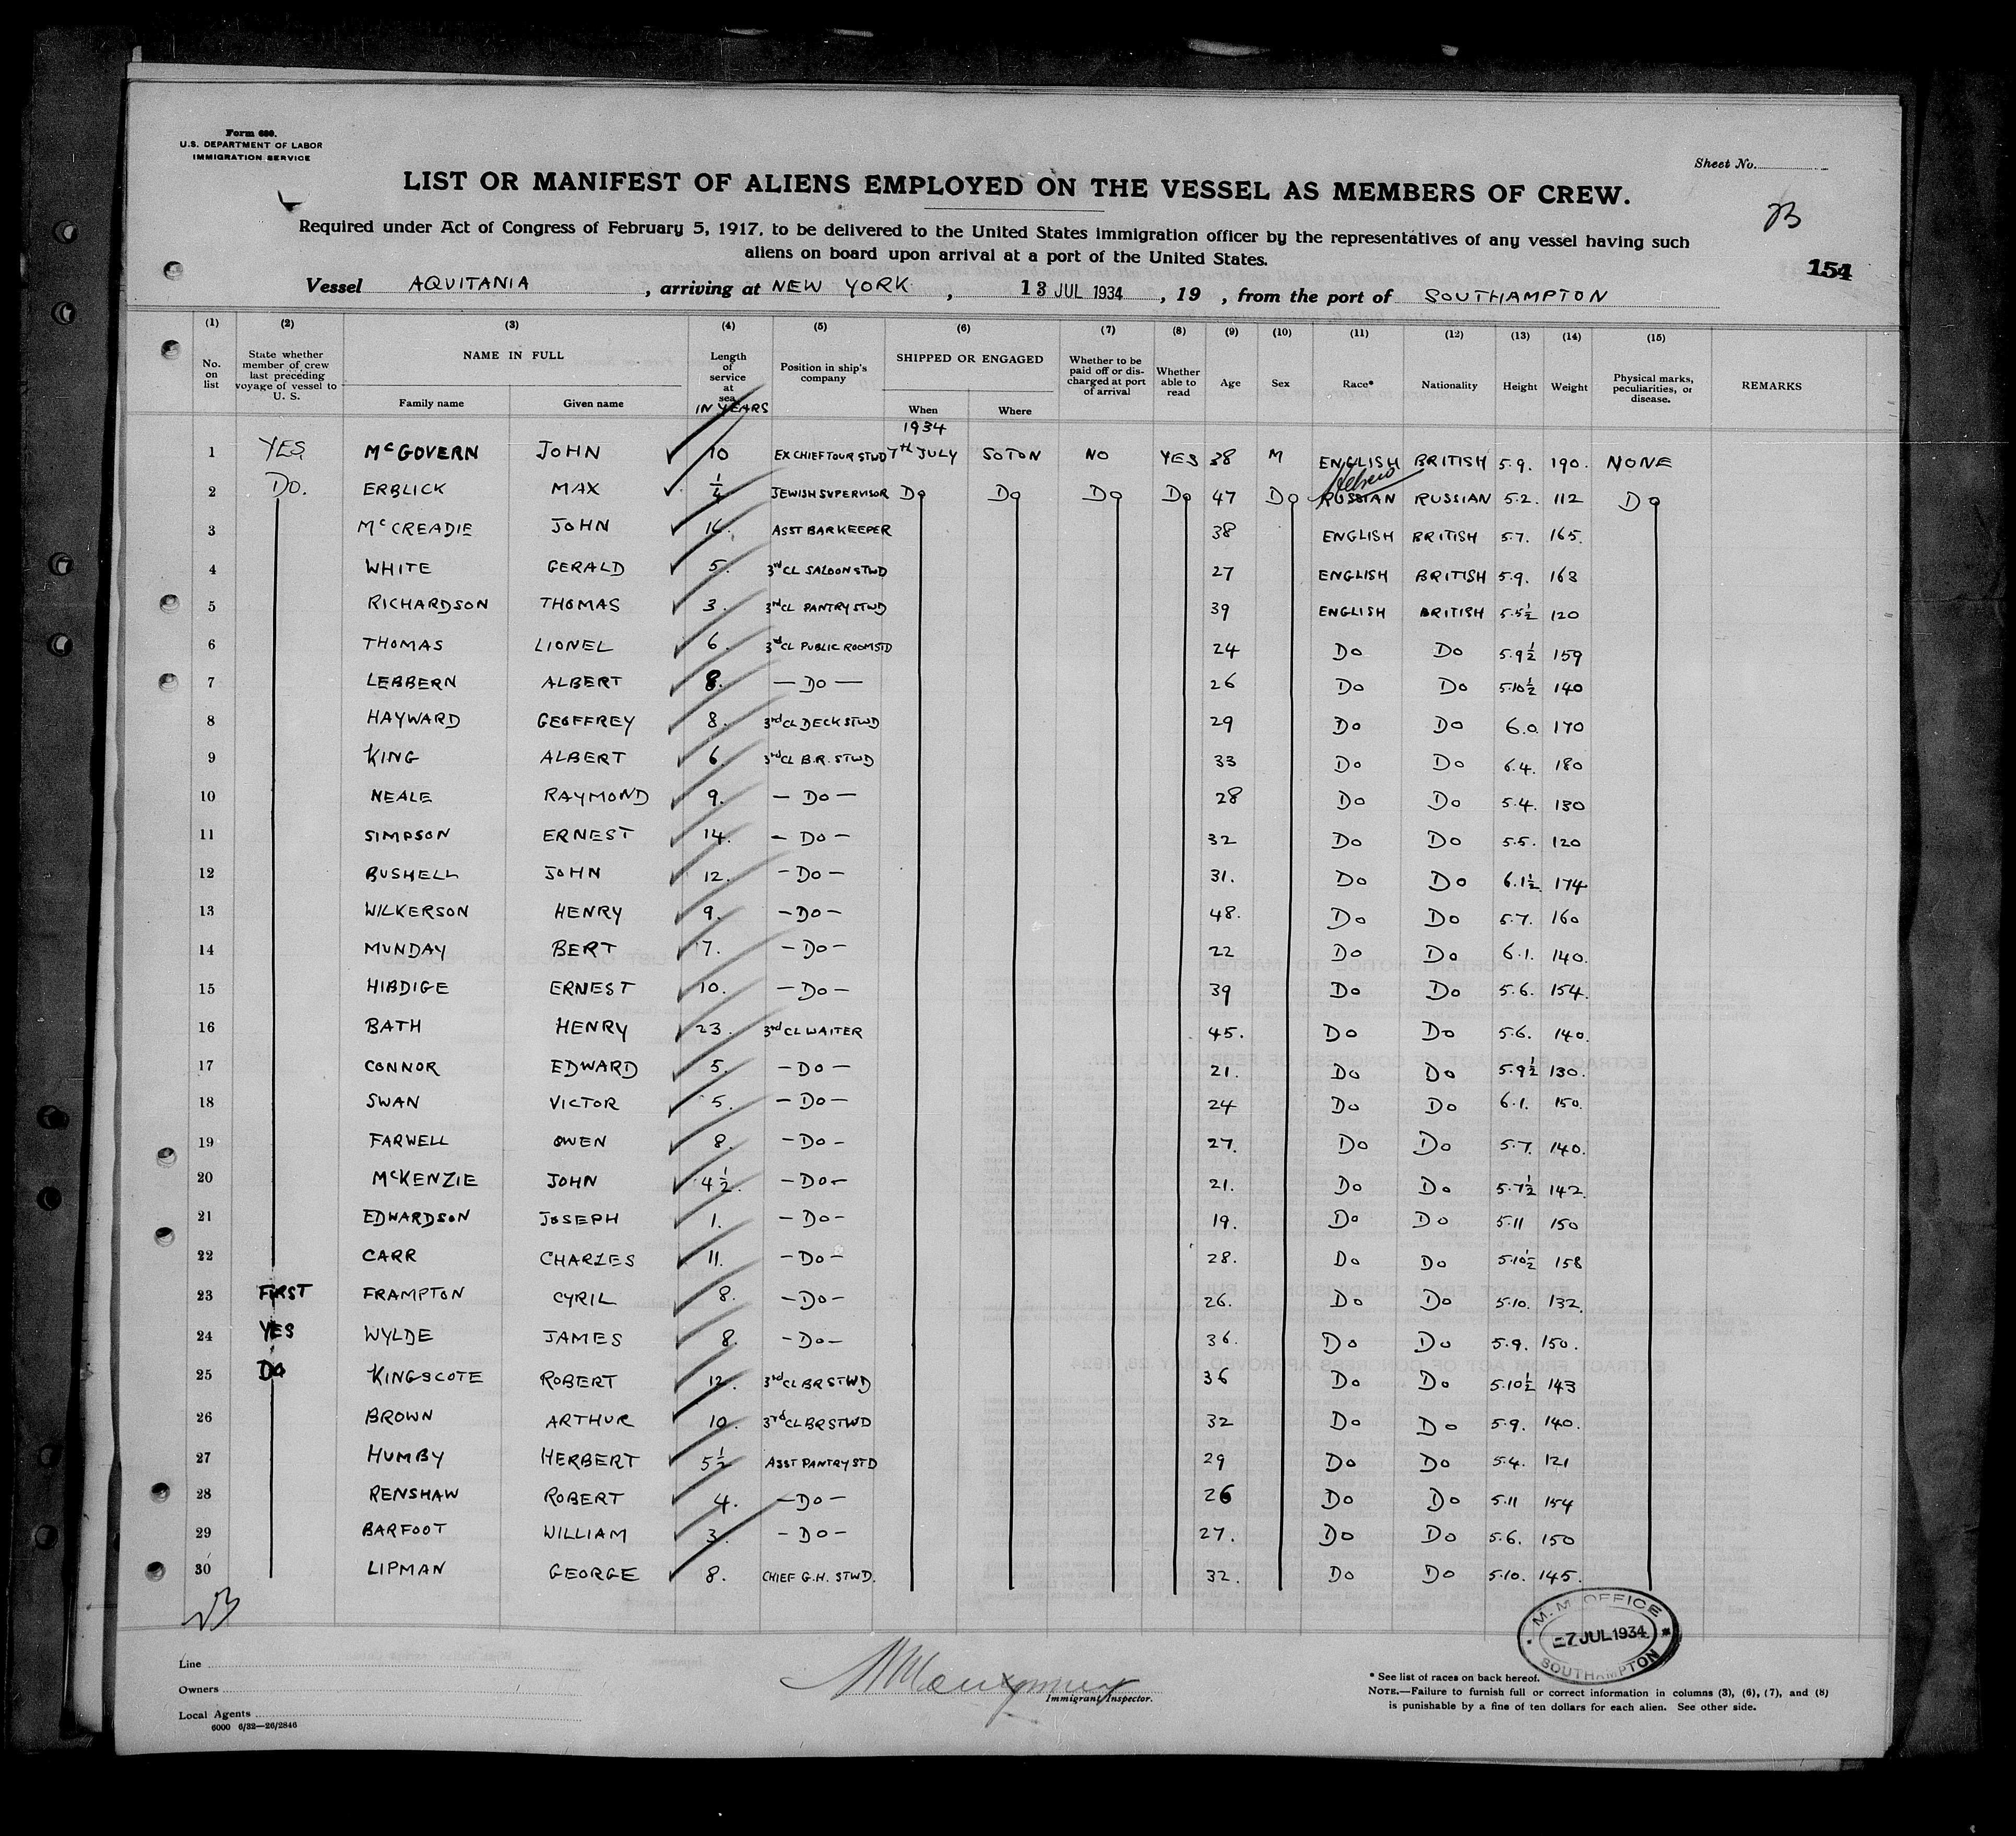 Form 680.
U.S. DEPARTMENT OF LABOR
IMMIGRATION SERVICE
Sheet No.
LIST OR MANIFEST OF ALIENS EMPLOYED ON THE VESSEL AS MEMBERS OF CREW.
Required under Act of Congress of February 5, 1917, to be delivered to the United States immigration officer by the representatives of any vessel having such
aliens on board upon arrival at a port of the United States.
154
Vessel AQUITANIA, arriving at NEW YORK, 13 JUL 1934, 19 , from the port of SOUTHAMPTON
(1) (2) (3) (4) (5) (6) (7) (8) (9) (10) (11) (12) (13) (14) (15)
No. on list
State whether member of crew last preceding voyage of vessel to U. S.
NAME IN FULL
Family name
Given name
Length of service at sea IN YEARS
Position in ship's company
SHIPPED OR ENGAGED
When
Where
Whether to be paid off or discharged at port of arrival
Whether able to read
Age
Sex
Race*
Nationality
Height
Weight
Physical marks, peculiarities, or disease.
REMARKS
1934
1 YES McGOVERN JOHN 10 EX CHIEF TOUR STWD 7th JULY SOTON NO YES 38 M ENGLISH BRITISH 5.9. 190. NONE
Hebrew
2 DO. ERBLICK MAX 1/4 JEWISH SUPERVISOR DO DO DO DO 47 DO RUSSIAN RUSSIAN 5.2. 112 DO
3 McCREADIE JOHN 16. ASST BARKEEPER 38 ENGLISH BRITISH 5.7. 165.
4 WHITE GERALD 5. 3rd CL SALOON STWD 27 ENGLISH BRITISH 5.9. 168
5 RICHARDSON THOMAS 3. 3rd CL PANTRY STWD 39 ENGLISH BRITISH 5.5½ 120
6 THOMAS LIONEL 6. 3rd CL PUBLIC ROOM STD 24 DO DO 5.9½ 159
7 LEBBERN ALBERT 8. — DO — 26 DO DO 5.10½ 140
8 HAYWARD GEOFFREY 8. 3rd CL DECK STWD 29 DO DO 6.0. 170
9 KING ALBERT 6. 3rd CL B.R. STWD 33 DO DO 6.4. 180
10 NEALE RAYMOND 9. — DO — 28 DO DO 5.4. 130
11 SIMPSON ERNEST 14. — DO — 32 DO DO 5.5. 120
12 BUSHELL JOHN 12. — DO — 31. DO DO 6.1½ 174
13 WILKERSON HENRY 9. — DO — 48. DO DO 5.7. 160
14 MUNDAY BERT 7. — DO — 22 DO DO 6.1. 140.
15 HIBDIGE ERNEST 10. — DO — 39 DO DO 5.6. 154.
16 BATH HENRY 23. 3rd CL WAITER 45. DO DO 5.6. 140.
17 CONNOR EDWARD 5. — DO — 21. DO DO 5.9½ 130.
18 SWAN VICTOR 5. — DO — 24 DO DO 6.1. 150.
19 FARWELL OWEN 8. — DO — 27. DO DO 5.7. 140.
20 McKENZIE JOHN 4½. — DO — 21. DO DO 5.7½ 142.
21 EDWARDSON JOSEPH 1. — DO — 19. DO DO 5.11 150
22 CARR CHARLES 11. — DO — 28. DO DO 5.10½ 158
23 FIRST FRAMPTON CYRIL 8. — DO — 26. DO DO 5.10. 132.
24 YES WYLDE JAMES 8. — DO — 36. DO DO 5.9. 150.
25 DO KINGSCOTE ROBERT 12. 3rd CL BR STWD 36 DO DO 5.10½ 143
26 BROWN ARTHUR 10. 3rd CL BR STWD 32 DO DO 5.9. 140.
27 HUMBY HERBERT 5½ ASST PANTRY STD 29 DO DO 5.4. 121
28 RENSHAW ROBERT 4. — DO — 26 DO DO 5.11 154
29 BARFOOT WILLIAM 3. — DO — 27. DO DO 5.6. 150
30 LIPMAN GEORGE 8. CHIEF G.H. STWD. 32. DO DO 5.10. 145.
M. M. OFFICE
7 JUL 1934
SOUTHAMPTON
Line
Owners
Local Agents
6000 6/32—26/2846
Immigrant Inspector.
* See list of races on back hereof.
NOTE.—Failure to furnish full or correct information in columns (3), (6), (7), and (8)
is punishable by a fine of ten dollars for each alien. See other side.